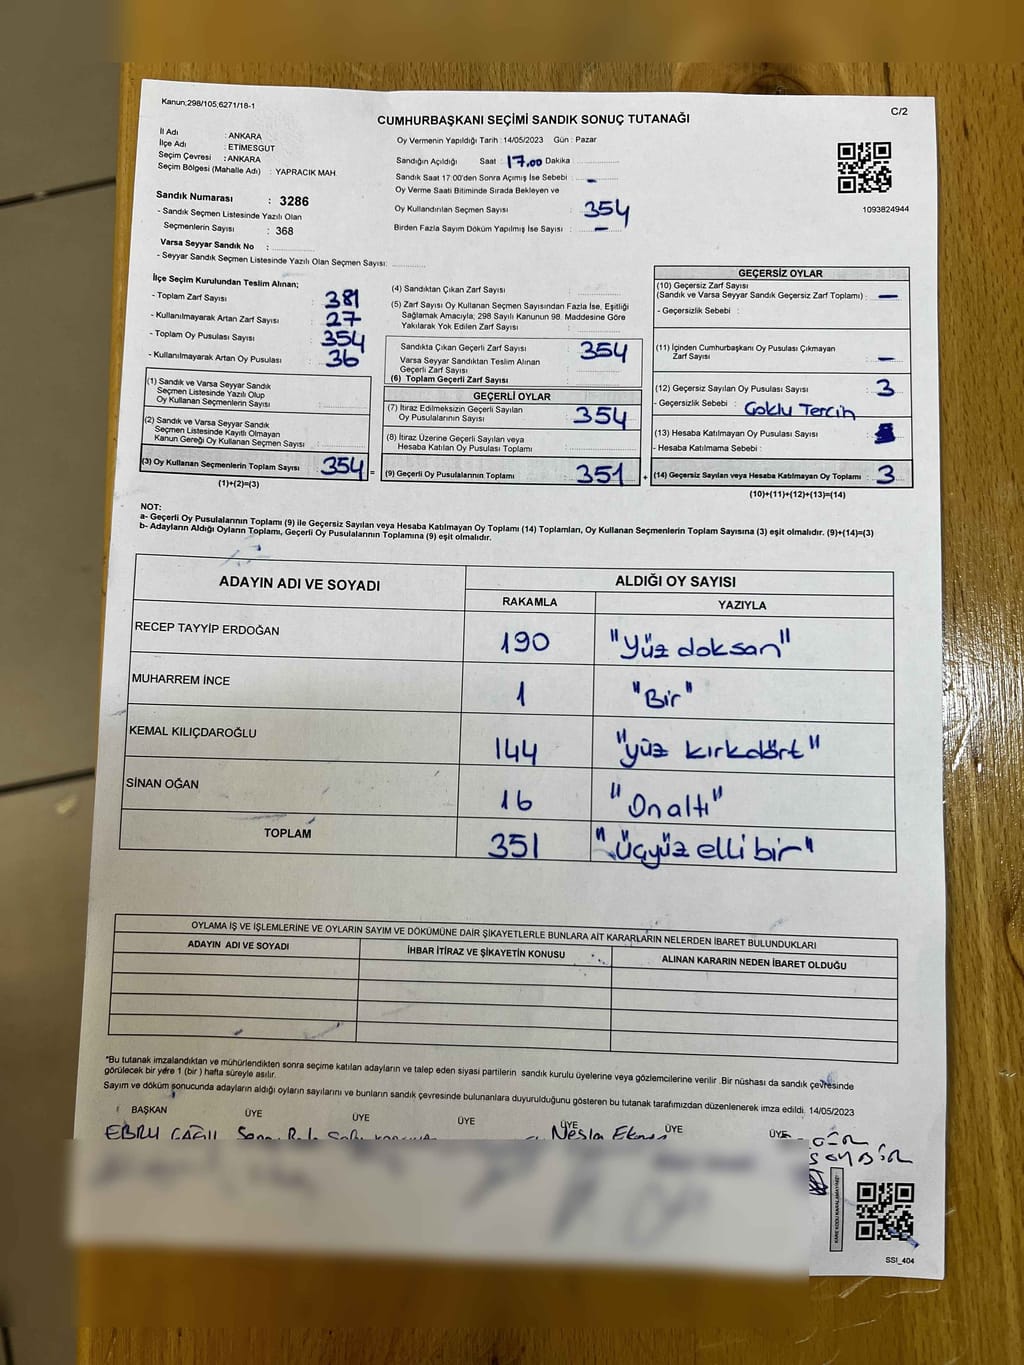 Kanun;298/105,6271/18-1
C/2
CUMHURBAŞKANI SEÇİMİ SANDIK SONUÇ TUTANAĞI
İl Adı : ANKARA
İlçe Adı : ETİMESGUT
Seçim Çevresi : ANKARA
Seçim Bölgesi (Mahalle Adı) : YAPRACIK MAH.
Sandık Numarası : 3286
- Sandık Seçmen Listesinde Yazılı Olan
Seçmenlerin Sayısı : 368
Varsa Seyyar Sandık No :
- Seyyar Sandık Seçmen Listesinde Yazılı Olan Seçmen Sayısı:
Oy Vermenin Yapıldığı Tarih : 14/05/2023 Gün : Pazar
Sandığın Açıldığı Saat : 17.00 Dakika
Sandık Saat 17:00'den Sonra Açımış İse Sebebi : -
Oy Verme Saati Bitiminde Sırada Bekleyen ve
Oy Kullandırılan Seçmen Sayısı : 354
Birden Fazla Sayım Döküm Yapılmış İse Sayısı : -
1093824944
İlçe Seçim Kurulundan Teslim Alınan;
- Toplam Zarf Sayısı : 381
- Kullanılmayarak Artan Zarf Sayısı : 27
- Toplam Oy Pusulası Sayısı : 354
- Kullanılmayarak Artan Oy Pusulası : 36
(1) Sandık ve Varsa Seyyar Sandık
Seçmen Listesinde Yazılı Olup
Oy Kullanan Seçmenlerin Sayısı :
(2) Sandık ve Varsa Seyyar Sandık
Seçmen Listesinde Kayıtlı Olmayan
Kanun Gereği Oy Kullanan Seçmen Sayısı :
(3) Oy Kullanan Seçmenlerin Toplam Sayısı : 354 =
(1)+(2)=(3)
(4) Sandıktan Çıkan Zarf Sayısı :
(5) Zarf Sayısı Oy Kullanan Seçmen Sayısından Fazla İse, Eşitliği
Sağlamak Amacıyla; 298 Sayılı Kanunun 98. Maddesine Göre
Yakılarak Yok Edilen Zarf Sayısı :
Sandıkta Çıkan Geçerli Zarf Sayısı : 354
Varsa Seyyar Sandıktan Teslim Alınan
Geçerli Zarf Sayısı :
(6) Toplam Geçerli Zarf Sayısı :
GEÇERLİ OYLAR
(7) İtiraz Edilmeksizin Geçerli Sayılan
Oy Pusulalarının Sayısı : 354
(8) İtiraz Üzerine Geçerli Sayılan veya
Hesaba Katılan Oy Pusulası Toplamı :
(9) Geçerli Oy Pusulalarının Toplamı : 351 +
GEÇERSİZ OYLAR
(10) Geçersiz Zarf Sayısı
(Sandık ve Varsa Seyyar Sandık Geçersiz Zarf Toplamı) : -
- Geçersizlik Sebebi :
(11) İçinden Cumhurbaşkanı Oy Pusulası Çıkmayan
Zarf Sayısı : -
(12) Geçersiz Sayılan Oy Pusulası Sayısı : 3
- Geçersizlik Sebebi : Çoklu Tercih
(13) Hesaba Katılmayan Oy Pusulası Sayısı :
- Hesaba Katılmama Sebebi :
(14) Geçersiz Sayılan veya Hesaba Katılmayan Oy Toplamı : 3
(10)+(11)+(12)+(13)=(14)
NOT:
a- Geçerli Oy Pusulalarının Toplamı (9) ile Geçersiz Sayılan veya Hesaba Katılmayan Oy Toplamı (14) Toplamları, Oy Kullanan Seçmenlerin Toplam Sayısına (3) eşit olmalıdır. (9)+(14)=(3)
b- Adayların Aldığı Oyların Toplamı, Geçerli Oy Pusulalarının Toplamına (9) eşit olmalıdır.
ADAYIN ADI VE SOYADI ALDIĞI OY SAYISI
RAKAMLA YAZIYLA
RECEP TAYYİP ERDOĞAN 190 "Yüz doksan"
MUHARREM İNCE 1 "Bir"
KEMAL KILIÇDAROĞLU 144 "yüz kırkdört"
SİNAN OĞAN 16 "Onaltı"
TOPLAM 351 "Üçyüz elli bir"
OYLAMA İŞ VE İŞLEMLERİNE VE OYLARIN SAYIM VE DÖKÜMÜNE DAİR ŞİKAYETLERLE BUNLARA AİT KARARLARIN NELERDEN İBARET BULUNDUKLARI
ADAYIN ADI VE SOYADI İHBAR İTİRAZ VE ŞİKAYETİN KONUSU ALINAN KARARIN NEDEN İBARET OLDUĞU
*Bu tutanak imzalandıktan ve mühürlendikten sonra seçime katılan adayların ve talep eden siyasi partilerin sandık kurulu üyelerine veya gözlemcilerine verilir .Bir nüshası da sandık çevresinde
görülecek bir yere 1 (bir ) hafta süreyle asılır.
Sayım ve döküm sonucunda adayların aldığı oyların sayılarını ve bunların sandık çevresinde bulunanlara duyurulduğunu gösteren bu tutanak tarafımızdan düzenlenerek imza edildi. 14/05/2023
BAŞKAN ÜYE ÜYE ÜYE ÜYE ÜYE ÜYE
EBRU
SSI_404